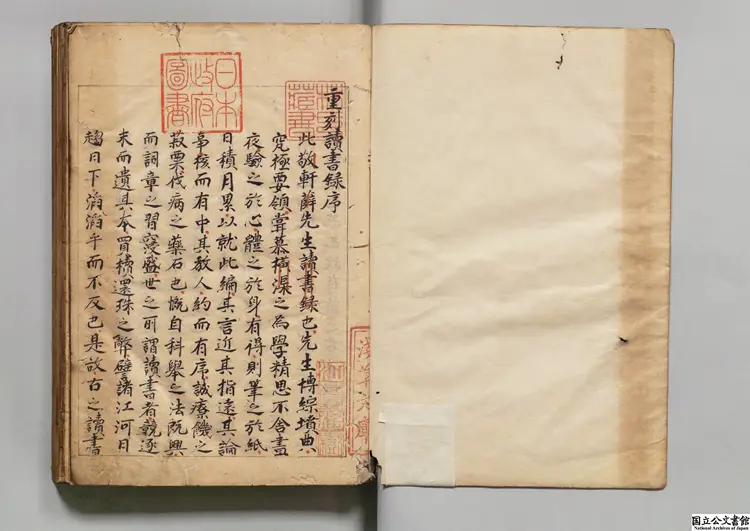 重刻讀書錄序
此敬軒薛先生讀書錄也先生博綜墳典
究極要領甞慕橫渠之為學精思不舍晝
夜驗之於心體之於身有得則筆之於紙
日積月累以就此編其言近其指遠其論
辛核而有中其教人約而有序誠療饑之
菽粟伐病之藥石也慨自科舉之法既興
而詞章之習寖盛世之所謂讀書者競逐
末而遺其本買櫝還珠之弊譬諸江河日
趨日下滔滔乎而不反也是故古之讀書
日本
政府
圖書
國立公文書館
National Archives of Japan